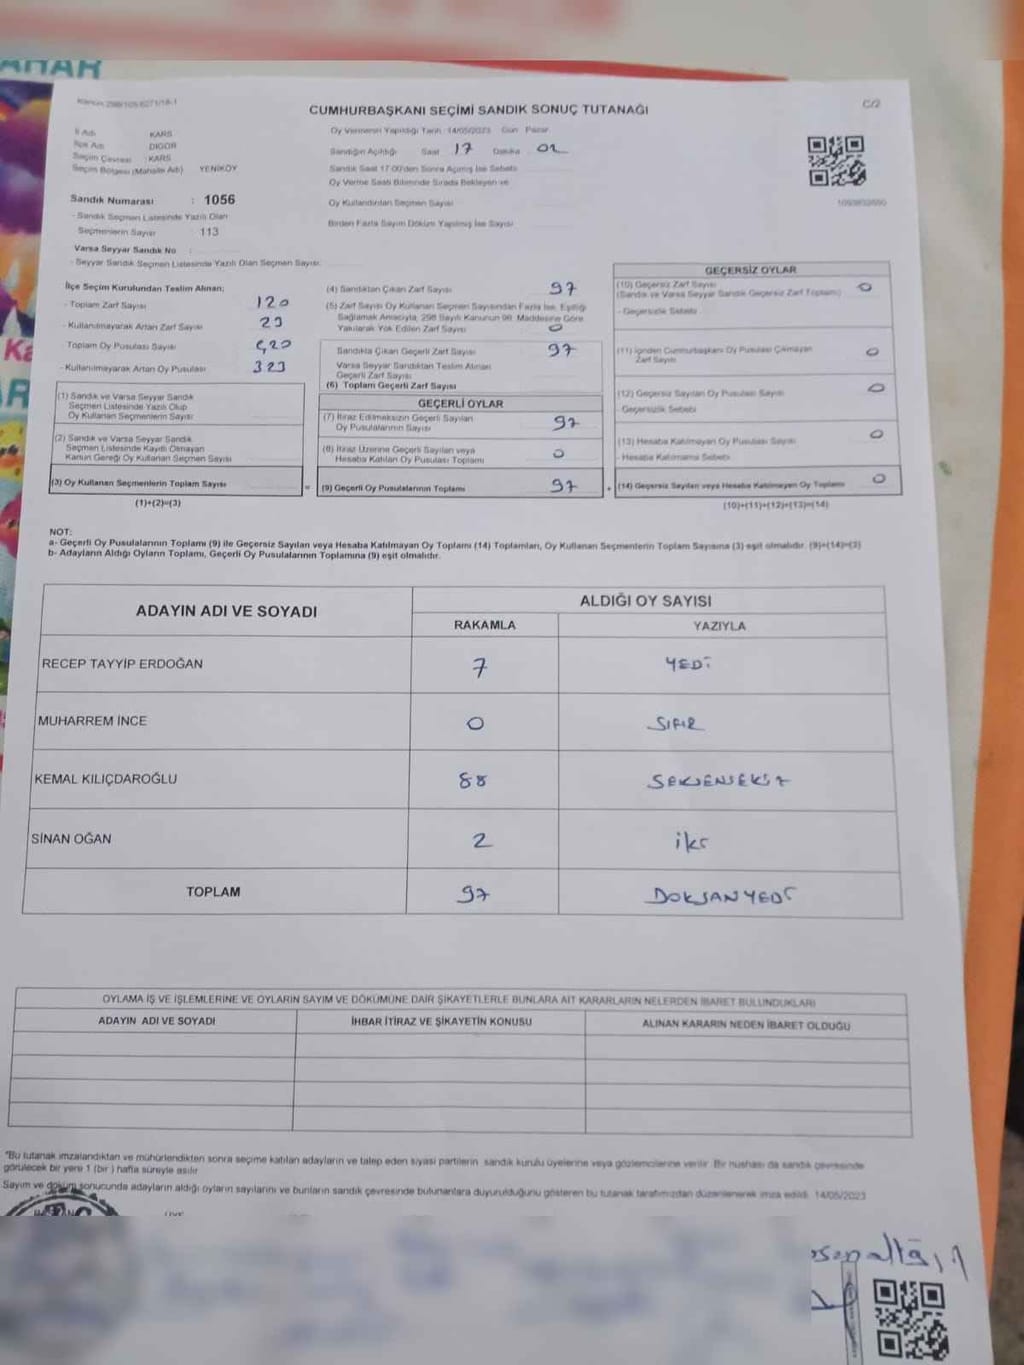 AHAR
Kanun 298/105 6271/18-1
C/2
CUMHURBAŞKANI SEÇİMİ SANDIK SONUÇ TUTANAĞI
Oy Vermenin Yapıldığı Tarih : 14/05/2023 Gün Pazar
İl Adı KARS
İlçe Adı DİGOR
Seçim Çevresi KARS
Seçim Bölgesi (Mahalle Adı) YENİKÖY
Sandığın Açıldığı Saat 17 Dakika 02
Sandık Saat 17:00'den Sonra Açılmış İse Sebebi
Oy Verme Saati Bitiminde Sırada Bekleyen ve
Oy Kullandırılan Seçmen Sayısı
Birden Fazla Sayım Döküm Yapılmış İse Sayısı
Sandık Numarası : 1056
- Sandık Seçmen Listesinde Yazılı Olan
Seçmenlerin Sayısı : 113
Varsa Seyyar Sandık No
- Seyyar Sandık Seçmen Listesinde Yazılı Olan Seçmen Sayısı:
İlçe Seçim Kurulundan Teslim Alınan;
- Toplam Zarf Sayısı 120
- Kullanılmayarak Artan Zarf Sayısı 23
- Toplam Oy Pusulası Sayısı 420
- Kullanılmayarak Artan Oy Pusulası 323
(1) Sandık ve Varsa Seyyar Sandık
Seçmen Listesinde Yazılı Olup
Oy Kullanan Seçmenlerin Sayısı
(2) Sandık ve Varsa Seyyar Sandık
Seçmen Listesinde Kayıtlı Olmayan
Kanun Gereği Oy Kullanan Seçmen Sayısı
(3) Oy Kullanan Seçmenlerin Toplam Sayısı
(1)+(2)=(3)
(4) Sandıktan Çıkan Zarf Sayısı 97
(5) Zarf Sayısı Oy Kullanan Seçmen Sayısından Fazla İse, Eşitliği
Sağlamak Amacıyla, 298 Sayılı Kanunun 98. Maddesine Göre
Yakılarak Yok Edilen Zarf Sayısı 0
Sandıkta Çıkan Geçerli Zarf Sayısı 97
Varsa Seyyar Sandıktan Teslim Alınan
Geçerli Zarf Sayısı
(6) Toplam Geçerli Zarf Sayısı
GEÇERLİ OYLAR
(7) İtiraz Edilmeksizin Geçerli Sayılan
Oy Pusulalarının Sayısı 97
(8) İtiraz Üzerine Geçerli Sayılan veya
Hesaba Katılan Oy Pusulası Toplamı 0
= (9) Geçerli Oy Pusulalarının Toplamı 97
GEÇERSİZ OYLAR
(10) Geçersiz Zarf Sayısı 0
(Sandık ve Varsa Seyyar Sandık Geçersiz Zarf Toplamı)
- Geçersizlik Sebebi
(11) İçinden Cumhurbaşkanı Oy Pusulası Çıkmayan 0
Zarf Sayısı
(12) Geçersiz Sayılan Oy Pusulası Sayısı 0
- Geçersizlik Sebebi
(13) Hesaba Katılmayan Oy Pusulası Sayısı 0
- Hesaba Katılmama Sebebi
+ (14) Geçersiz Sayılan veya Hesaba Katılmayan Oy Toplamı 0
(10)+(11)+(12)+(13)=(14)
NOT:
a- Geçerli Oy Pusulalarının Toplamı (9) ile Geçersiz Sayılan veya Hesaba Katılmayan Oy Toplamı (14) Toplamları, Oy Kullanan Seçmenlerin Toplam Sayısına (3) eşit olmalıdır. (9)+(14)=(3)
b- Adayların Aldığı Oyların Toplamı, Geçerli Oy Pusulalarının Toplamına (9) eşit olmalıdır.
ADAYIN ADI VE SOYADI ALDIĞI OY SAYISI
RAKAMLA YAZIYLA
RECEP TAYYİP ERDOĞAN 7 YEDİ
MUHARREM İNCE 0 SIFIR
KEMAL KILIÇDAROĞLU 88 SEKSENSEKİZ
SİNAN OĞAN 2 iki
TOPLAM 97 DOKSANYEDİ
OYLAMA İŞ VE İŞLEMLERİNE VE OYLARIN SAYIM VE DÖKÜMÜNE DAİR ŞİKAYETLERLE BUNLARA AİT KARARLARIN NELERDEN İBARET BULUNDUKLARI
ADAYIN ADI VE SOYADI İHBAR İTİRAZ VE ŞİKAYETİN KONUSU ALINAN KARARIN NEDEN İBARET OLDUĞU
"Bu tutanak imzalandıktan ve mühürlendikten sonra seçime katılan adayların ve talep eden siyasi partilerin sandık kurulu üyelerine veya gözlemcilerine verilir. Bir nüshası da sandık çevresinde
görülecek bir yere 1 (bir) hafta süreyle asılır
Sayım ve döküm sonucunda adayların aldığı oyların sayılarını ve bunların sandık çevresinde bulunanlara duyurulduğunu gösteren bu tutanak tarafımızdan düzenlenerek imza edildi. 14/05/2023